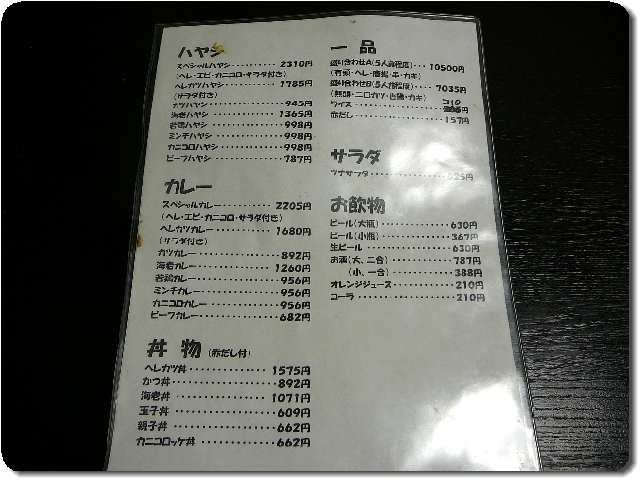 ハヤシ
スペシャルハヤシ ・・・・・・・・ 2310円
(ヘレ・エビ・カニコロ・サラダ付き)
ヘレカツハヤシ ・・・・・・・・ 1785円
(サラダ付き)
カツハヤシ ・・・・・・・・・・・ 945円
海老ハヤシ ・・・・・・・・・・ 1365円
若鶏ハヤシ ・・・・・・・・・・・ 998円
ミンチハヤシ ・・・・・・・・・・ 998円
カニコロハヤシ ・・・・・・・・・ 998円
ビーフハヤシ ・・・・・・・・・・ 787円
カレー
スペシャルカレー ・・・・・・・・ 2205円
(ヘレ・エビ・カニコロ・サラダ付き)
ヘレカツカレー ・・・・・・・・ 1680円
(サラダ付き)
カツカレー ・・・・・・・・・・・ 892円
海老カレー ・・・・・・・・・・ 1260円
若鶏カレー ・・・・・・・・・・・ 956円
ミンチカレー ・・・・・・・・・・ 956円
カニコロカレー ・・・・・・・・・ 956円
ビーフカレー ・・・・・・・・・・ 682円
丼物 (赤だし付)
ヘレカツ丼 ・・・・・・・・・・ 1575円
かつ丼 ・・・・・・・・・・・・・ 892円
海老丼 ・・・・・・・・・・・・ 1071円
玉子丼 ・・・・・・・・・・・・・ 609円
親子丼 ・・・・・・・・・・・・・ 662円
カニコロッケ丼 ・・・・・・・・・ 662円
一品
盛り合わせA(5人前程度)・・・ 10500円
(有頭・ヘレ・唐揚・串・カキ)
盛り合わせB(5人前程度)・・・ 7035円
(無頭・一口カツ・若鶏・カキ)
ライス ・・・・・・・・・・・・・ 円
赤だし ・・・・・・・・・・・・・ 157円
サラダ
ツナサラダ ・・・・・・・・・・・ 525円
お飲物
ビール(大瓶)・・・・・・・・・・ 630円
ビール(小瓶)・・・・・・・・・・ 367円
生ビール ・・・・・・・・・・・・ 630円
お酒(大、二合)・・・・・・・・・ 787円
(小、一合)・・・・・・・・・ 388円
オレンジジュース ・・・・・・・・ 210円
コーラ ・・・・・・・・・・・・・ 210円